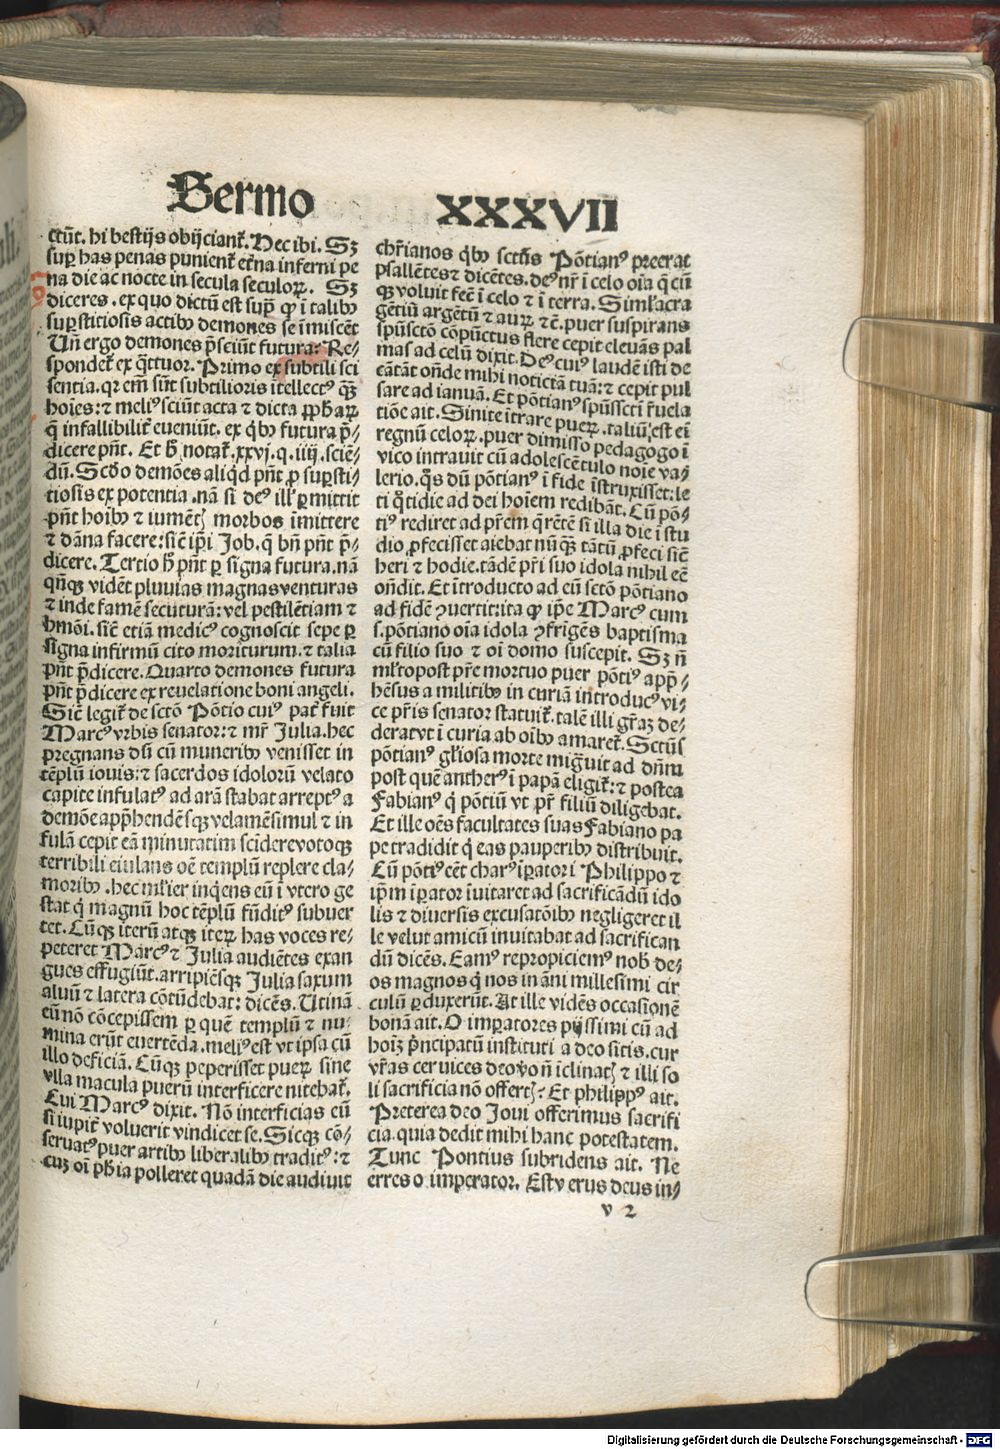 Sermo XXXVII
ctūt. hi bestijs obijciant᷑. Hec ibi. Sʒ
sup̱ has penas punient᷑ et̄na inferni pe
na die ac nocte in secula seculoꝝ. Sʒ
diceres. ex quo dictū est sup̱ ꝙ ī talibꝰ
sup̱stitiosis actibꝰ demones se īmiscēt
Uñ ergo demones p̄sciūt futura: Re⸗
spondet᷑ ex q̄ttuor. Primo ex subtili sci
sentia. qꝛ em̄ sūt subtilioris ītellectꝰ qꝫ
hoīes: ⁊ meliꝰ sciūt acta ⁊ dicta ꝓpħaꝝ
q̄ infallibilit᷑ eueniūt. ex q̇bꝰ futura p̄⸗
dicere pn̄t. Et ħ notat᷑. xxvj. q. iiij. sciē⸗
dū. Scd̓o demōes aliq̇d pn̄t ꝑ suꝑsti⸗
tiosis ex potentia. nā si deꝰ ill̓ ꝑmittit
pn̄t hoībꝰ ⁊ iumēt̄ morbos īmittere
⁊ dāna facere: sic̄ ip̄i Job. q̄ bn̄ pn̄t p̄⸗
dicere. Tertio ħ pn̄t ꝑ signa futura. nā
qn̄qꝫ vidēt pluuias magnas venturas
⁊ inde famē secuturā: vel pestilētiam ⁊
hmōi. sic̄ etiā medicꝰ cognoscit sepe ꝑ
signa infirmū cito moriturum. ⁊ talia
pn̄t p̄dicere. Quarto demones futura
pn̄t p̄dicere ex reuelatione boni angeli.
Sic̄ legit᷑ de sctō Pōtio cuiꝰ pat᷑ fuit
Marcꝰ vrbis senator: ⁊ mr̄ Julia. hec
pregnans dū cū muneribꝰ venisset in
tēplū iouis: ⁊ sacerdos idolorū velato
capite infulatꝰ ad arā stabat arreptꝰ a
demōe app̄hendēsqꝫ velamē simul ⁊ in
fulā cepit eā minutatim scīdere votoqꝫ
terribili eiulans oē templū replere cla⸗
moribꝰ. hec ml̓ier inq̇ens eū ī vtero ge
stat q̇ magnū hoc tēplū fūditꝰ subuer
tet. Cūqꝫ iterū atqꝫ iteꝝ has voces re⸗
peteret Marcꝰ ⁊ Julia audiētes exan
gues effugiūt. arripiēsqꝫ Julia saxum
aluū ⁊ latera cōtūdebat: dicēs. Utinā
eū nō cōcepissem ꝑ quē templū ⁊ nu⸗
mina erūt euertēda. meliꝰ est vt ipsa cū
illo deficiā. Cūqꝫ peperisset pueꝝ sine
vlla macula puerū interficere nitebat᷑.
Cui Marcꝰ dixit. Nō interficias eū
si iupit᷑ voluerit vindicet se. Sicqꝫ cō⸗
seruatꝰ puer artibꝰ liberalibꝰ traditꝰ: ⁊
cuꝫ oī ph̄ia polleret quadā die audiuit
chr̄ianos q̇bꝰ sct̄s Pōtianꝰ preerat
psallētes ⁊ dicētes. deꝰ nr̄ ī celo oīa q̄cū
qꝫ voluit fec̄ ī celo ⁊ ī terra. Siml̓acra
gētiū argētū ⁊ auꝝ ⁊c̄. puer suspirans
spūsctō cōpūctus flere cepit eleuās pal
mas ad celū dixit. Deꝰ cuiꝰ laudē isti de
cātāt on̄de mihi noticiā tuā: ⁊ cepit pul
sare ad ianuā. Et pōtianꝰ spūsscti r̄uela
tiōe ait. Sinite ītrare pueꝝ. taliū est eī
regnū celoꝝ. puer dimisso pedagogo ī
vico intrauit cū adolescētulo noīe va⸗
lerio. q̄s dū pōtianꝰ ī fide īstruxisset: le
ti q̄tidie ad dei hoīem redibāt. Cū pō⸗
tiꝰ rediret ad pr̄em q̄rētē si illa die ī stu
dio ꝓfecisset aiebat nūqꝫ tātū ꝓfeci sic̄
heri ⁊ hodie. tādē pr̄i suo idola nihil eē
on̄dit. Et ītroducto ad eū sctō pōtiano
ad fidē ꝯuertit: ita ꝙ ip̄e Marcꝰ cum
s. pōtiano oīa idola ꝯfrīgēs baptisma
cū filio suo ⁊ oī domo suscepit. Sʒ n̄
ml̓topost pr̄e mortuo puer pōtiꝰ app̄⸗
hēsus a militibꝰ in curiā introducꝰ vi⸗
ce pr̄is senator statuit᷑. talē illi gr̄aꝫ de⸗
derat vt ī curia ab oībꝰ amaret᷑. Sctūs
pōtianꝰ gl̓iosa morte migͣuit ad dn̄m
post quē antherꝰ ī papā eligit᷑: ⁊ postea
Fabianꝰ q̇ pōtiū vt pr̄ filiū diligebat.
Et ille oēs facultates suas Fabiano pa
pe tradidit q̇ eas pauperibꝰ distribuit.
Cū pōtiꝰ eēt charꝰ īꝑatori Philippo ⁊
ip̄m īꝑator īuitaret ad sacrificādū ido
lis ⁊ diuersis excusatōibꝰ negligeret il
le velut amicū inuitabat ad sacrifican
dū dicēs. Eamꝰ repropiciemꝰ nob̓ de⸗
os magnos q̇ nos in āni millesimi cir
culū ꝑduxerūt. At ille vidēs occasionē
bonā ait. O imꝑatores pijssimi cū ad
hoīꝫ p̄ncipatū instituti a deo sitis. cur
vr̄as ceruices deo vō n̄ īclinat̄ ⁊ illi so
li sacrificia nō offert̄? Et philippꝰ ait.
Preterea deo Joui offerimus sacrifi
cia quia dedit mihi hanc potestatem.
Tunc Pontius subridens ait. Ne
erres o imperator. Est verus deus in⸗
v 2
Digitalisierung gefördert durch die Deutsche Forschungsgemeinschaft - DFG